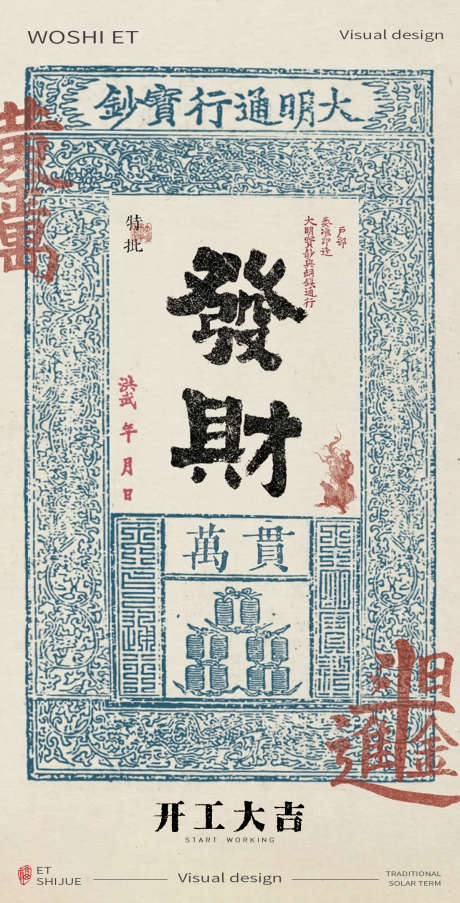 WOSHI ET
Visual design
大明通行寶鈔
特批
戶部
奏准印造
大明寶鈔與銅錢通行
發
財
洪武 年 月 日
萬貫
日進斗金
开工大吉
START WORKING
ET
SHIJUE
Visual design
TRADITIONAL
SOLAR TERM